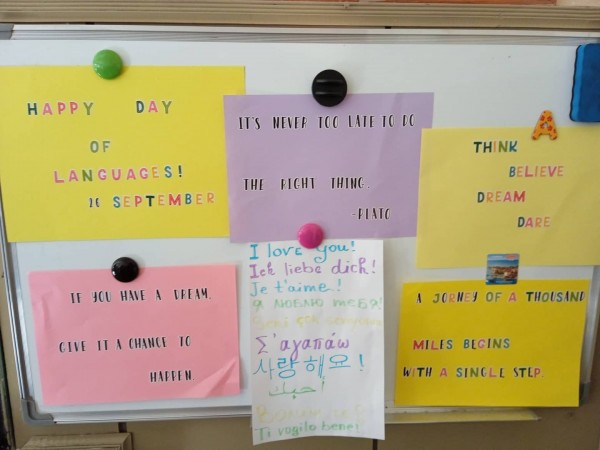 HAPPY DAY
OF
LANGUAGES!
26 SEPTEMBER
IT'S NEVER TOO LATE TO DO
THE RIGHT THING.
-PLATO
THINK
BELIEVE
DREAM
DARE
IF YOU HAVE A DREAM,
GIVE IT A CHANCE TO
HAPPEN
I love you!
Ich liebe dich!
Je t'aime!
Σ'αγαπάω
사랑해요!
أحبك
Ti voglio bene!
A JORNEY OF A THOUSAND
MILES BEGINS
WITH A SINGLE STEP.
A